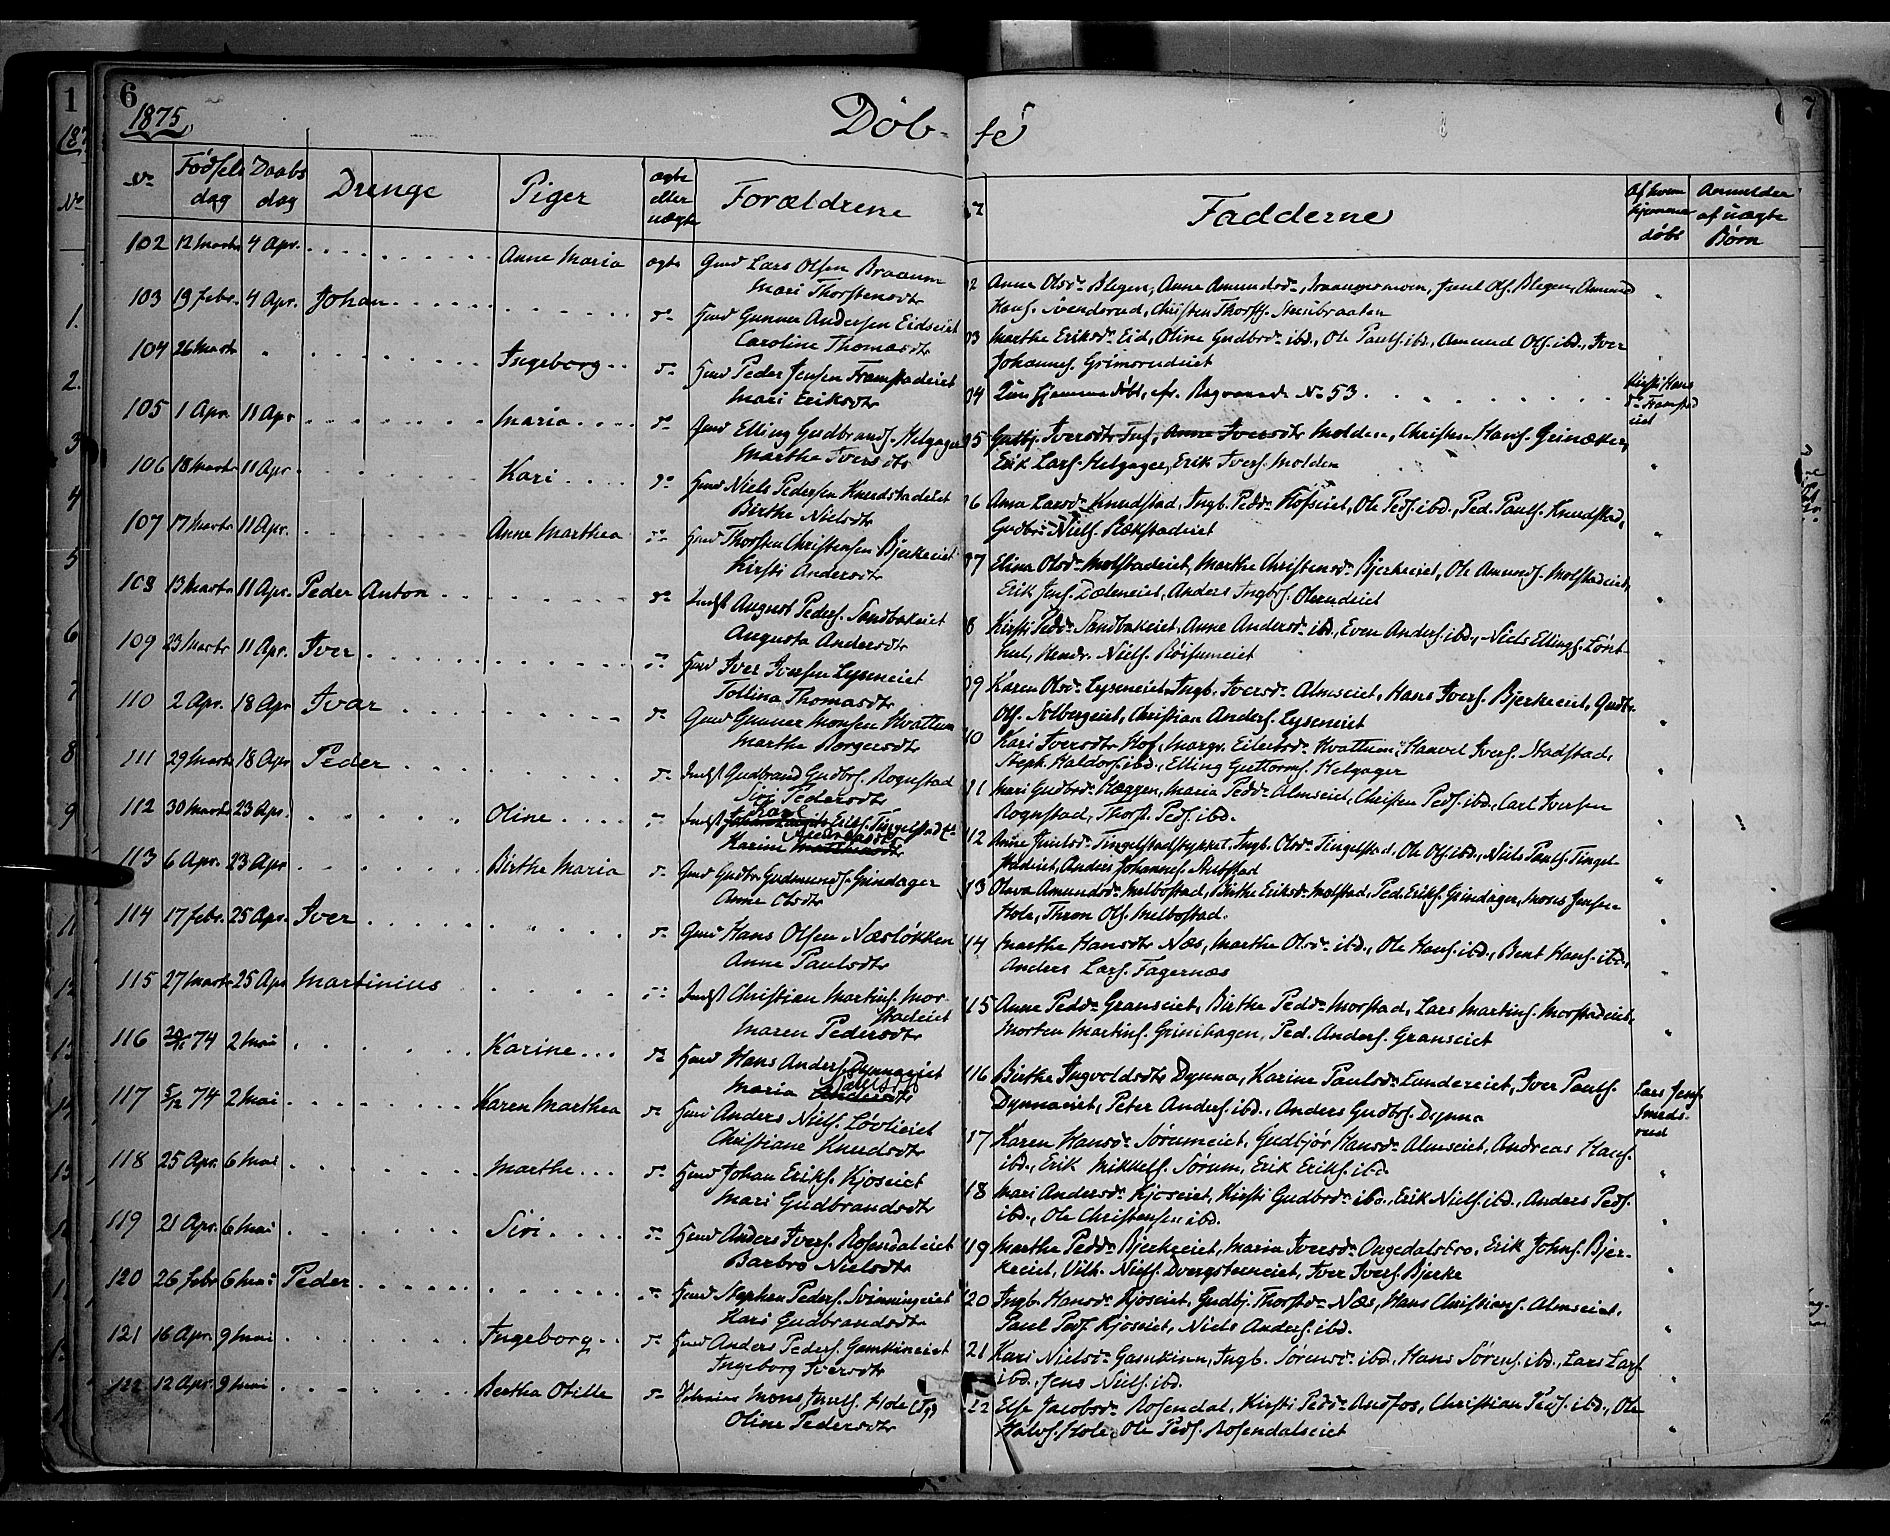 6
1875
Døb-
te
7
No
Fødsels dag
Daabs dag
Drenge
Piger
ægte eller uægte
Forældrene
Fadderne
af hvem hjemme døbt
Anmelder af uægte Børn
102 12 Marts 4 Apr. Anne Maria ægte Gmd Lars Olsen Braaum
Mari Thorstensdtr
103 19 Febr. 4 Apr. Johan do Hmd Gunner Andersen Eidseiet
Caroline Thomasdtr
104 26 Marts " Ingeborg do Hmd Peder Jensen Framstadeiet
Mari Eriksdtr
105 1 Apr. 11 Apr Maria do Gmd Elling Gudbrands. Helgager
Marthe Iversdtr
106 18 Marts 11 Apr. Kari do Hmd Niels Pedersen Knudstadeiet
Birthe Nielsdtr
107 17 Marts 11 Apr. Anne Marthea do Hmd Thorsten Christensen Bjerkeeiet
Kirsti Andersdtr
108 13 Marts 11 Apr. Peder Anton do Indst August Peders. Sandbakeiet
Augusta Andersdtr
109 23 Marts 11 Apr. Iver do Hmd Iver Iversen Lyseneiet
Tollina Thomasdtr
110 2 Apr. 18 Apr Ivar do Gmd Gunner Monsen Hvattum
Marthe Borgersdtr
111 29 Marts 18 Apr Peder do Indst Gudbrand Gudbrs. Rognstad
Siri Pedersdtr
112 30 Marts 23 Apr. Oline do Indst Eriks. Tingelstad
Karine
113 6 Apr. 23 Apr Birthe Maria do Gmd Gudbr. Gudmunds. Grindager
Anne Olsdtr
114 17 Febr. 25 Apr. Iver do Gmd Hans Olsen Næsløkken
Anne Paulsdtr
115 27 Marts 25 Apr Martinius do Indst Christian Martins. Mor-
stadeiet
Maren Pedersdtr
116 74 2 Mai Karine do Hmd Hans Anders. Dynnaeiet
Maria
117 5/12 74 2 Mai Karen Marthea do Hmd Anders Niels. Løvlieiet
Christiane Knudsdtr
118 25 Apr. 6 Mai Marthe do Hmd Johan Eriks. Kjoseiet
Mari Gudbrandsdtr
119 21 Apr. 6 Mai Siri do Hmd Anders Ivers. Rosendaleiet
Barbro Nielsdtr
120 26 Febr 6 Mai Peder do Hmd Stephen Peders. Svinningeiet
Kari Gudbrandsdtr
121 16 Apr. 9 Mai Ingeborg do Hmd Anders Peders. Gamkineiet
Ingeborg Iversdtr
122 12 Apr. 9 Mai Bertha Otilie do Mons Juuls. Hole
Oline Pedersdtr
02 Anne Olsdr Blegen, Anne Amundsdr, Juul Ols. Blegen, Amund
Hans. Svendsrud, Christen Thorsts.
03 Marthe Eriksdr Eid, Oline Gudbrdr ibd., Ole Pauls. ibd., Amund Ols. ibd., Iver
Johannes. Grimsrudeiet
04 hjemmedøbt, cfr. No 53 Kirsti Hans
dr Framstad
eiet
05 Iversdtr Molden, Christen Hans. Grinaker,
Erik Lars. Helgager, Erik Ivers. Molden
06 Anna Larsdr Knudstad, Ingb. Peddr Hofseiet, Ole Peds. ibd., Ped. Pauls. Knudstad,
Gudbr. Niels. Rækstadeiet
07 Elina Olsdr Molstadeiet, Marthe Christensdr Bjerkeeiet, Ole Amunds. Molstadeiet,
Erik Jens. Dæleneiet, Anders Ingbrs. Olerudeiet
8 Kirsti Peddr Sandbakeiet, Anne Andersdr ibd., Even Anders. ibd., Niels Ellings.
Niels. Røisumeiet
09 Karen Olsdr Lyseneiet, Ingb. Iversdr Almseiet, Hans Ivers. Bjerkeeiet, Gudbr.
Ols. Solbergeiet, Christian Anders. Lyseneiet
10 Kari Iversdtr Hof, Margr. Eilertsdr Hvattum, Ivers. Nadstad,
Steph. Haldors. ibd., Elling Guttorms. Helgager
11 Mari Gudbrdr Hæggen, Maria Peddr Almseiet, Christen Peds. ibd., Carl Iversen
Rognstad, Thorst. Peds. ibd.
12 Anne Juulsdr Tingelstadstykket, Ingb. Olsdr Tingelstad, Ole Ols. ibd., Niels Pauls. Tingel-
stadeiet, Anders Johannes.
13 Olava Amundsdr Melbostad, Birthe Eriksdr Molstad, Ped. Eriks. Grindager, Mons Jensen
Hole, Thron Ols. Melbostad.
14 Marthe Hansdtr Næs, Marthe Olsdr ibd., Ole Hans. ibd., Bent Hans. ibd.,
Anders Lars. Fagernæs
15 Anne Peddr Granseiet, Birthe Peddr Morstad, Lars Martins. Morstadeiet,
Morten Martins. Grinihagen, Ped. Anders. Granseiet
116 Birthe Ingvoldsdtr Dynna, Karine Paulsdr Lundereiet, Iver Pauls. Lars Jens.
Dynnaeiet, Peter Anders. ibd., Anders Gudbrs. Dynna Smeds-
rud
17 Karen Hansdr Sørumeiet, Gudbjør Hansdr Almseiet, Andreas Hans.
ibd., Erik Mikkels. Sørum, Erik Eriks. ibd.
18 Mari Andersdr Kjoseiet, Kirsti Gudbrdr ibd., Erik Niels. ibd., Anders Peds.
ibd., Ole Christensen ibd.
19 Marthe Peddr Bjerkeeiet, Maria Iversdr Ongedalsbro, Erik Johns. Bjer-
keeiet, Vilh. Niels. Dvergsteneiet, Iver Ivers. Bjerke
20 Ingb. Hansdr Kjoseiet, Gudbj. Thorstdr Næs, Hans Christians. Almseiet,
Paul Peds. Kjoseiet, Niels Anders. ibd.
21 Kari Nielsdr Gamkinn, Ingb. Sørensdr ibd., Hans Sørens. ibd., Lars Lars.
ibd., Jens Niels. ibd.
22 Else Jacobsdr Rosendal, Kirsti Peddr Andfos, Christian Peds. ibd., Ole
Halvs. Hole, Ole Peds. Rosendalseiet